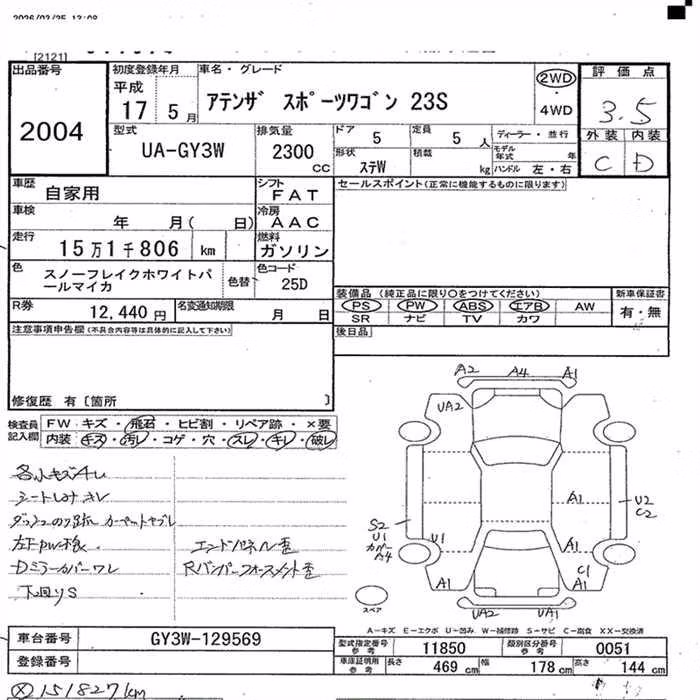 [2121]
出品番号
2004
初度登録年月
平成
17 5月
車名・グレード
アテンザ スポーツワゴン 23S
2WD
・
4WD
評価点
3.5
外装 内装
C D
型式
UA-GY3W
排気量
2300
CC
ドア 5
定員 5 人
ディーラー・並行
モデル年式 年
形状 ステW
積載 kg
ハンドル 左・右
車歴 自家用
シフト FAT
セールスポイント(正常に機能するものに限ります)
車検 年 月( 日)
冷房 AAC
走行 15万1千806 km
燃料 ガソリン
色 スノーフレイクホワイトパールマイカ
色替
色コード 25D
装備品 (純正品に限り○をつけてください)
新車保証書
PS PW ABS エアB AW
有・無
SR ナビ TV カワ
R券 12,440 円
名変通知期限 月 日
後日品
注意事項申告欄(不具合内容等は具体的に記入して下さい)
修復歴 有〔箇所 〕
検査員記入欄
FW キズ・飛石・ヒビ割・リペア跡・×要
内装 キズ・汚レ・コゲ・穴・スレ・キレ・破レ
各小キズ
シートしみキレ
カーペットヤブレ
エンドパネル歪
Dミラーカバーワレ
Rバンパーフォースメント歪
下回りS
A2 A4 A1
UA2
A1
U2
C2
S2
U1
カバー
A4
U1
A1
C1
A1
A1
UA2 UA1
スペア
A－キズ E－エクボ U－凹み W－補修跡 S－サビ C－腐食 XX－交換済
車台番号 GY3W-129569
登録番号
型式指定番号 参考 11850
類別区分番号 参考 0051
車庫証明用 参考 長さ 469 cm 幅 178 cm 高さ 144 cm
151827km